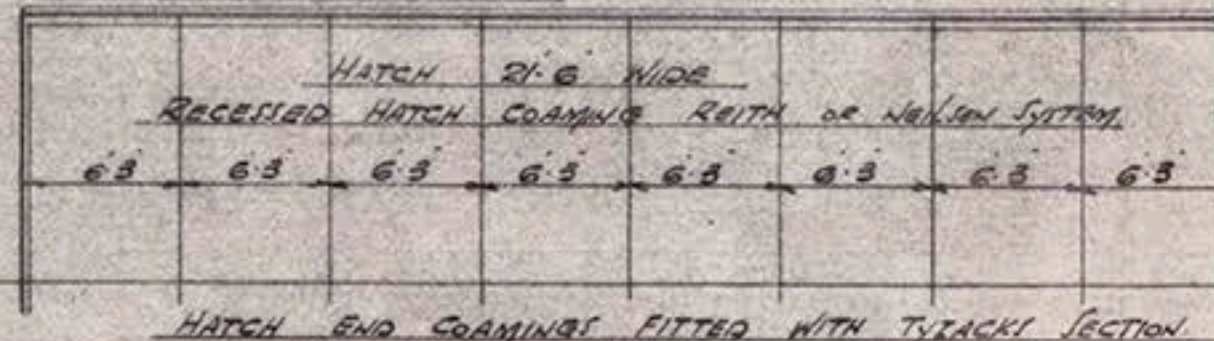 HATCH 21'-6" WIDE
RECESSED HATCH COAMING REITH OR NEILSON SYSTEM.
6'-3" 6'-3" 6'-3" 6'-3" 6'-3" 6'-3" 6'-3" 6'-3"
HATCH END COAMINGS FITTED WITH TYZACKS SECTION